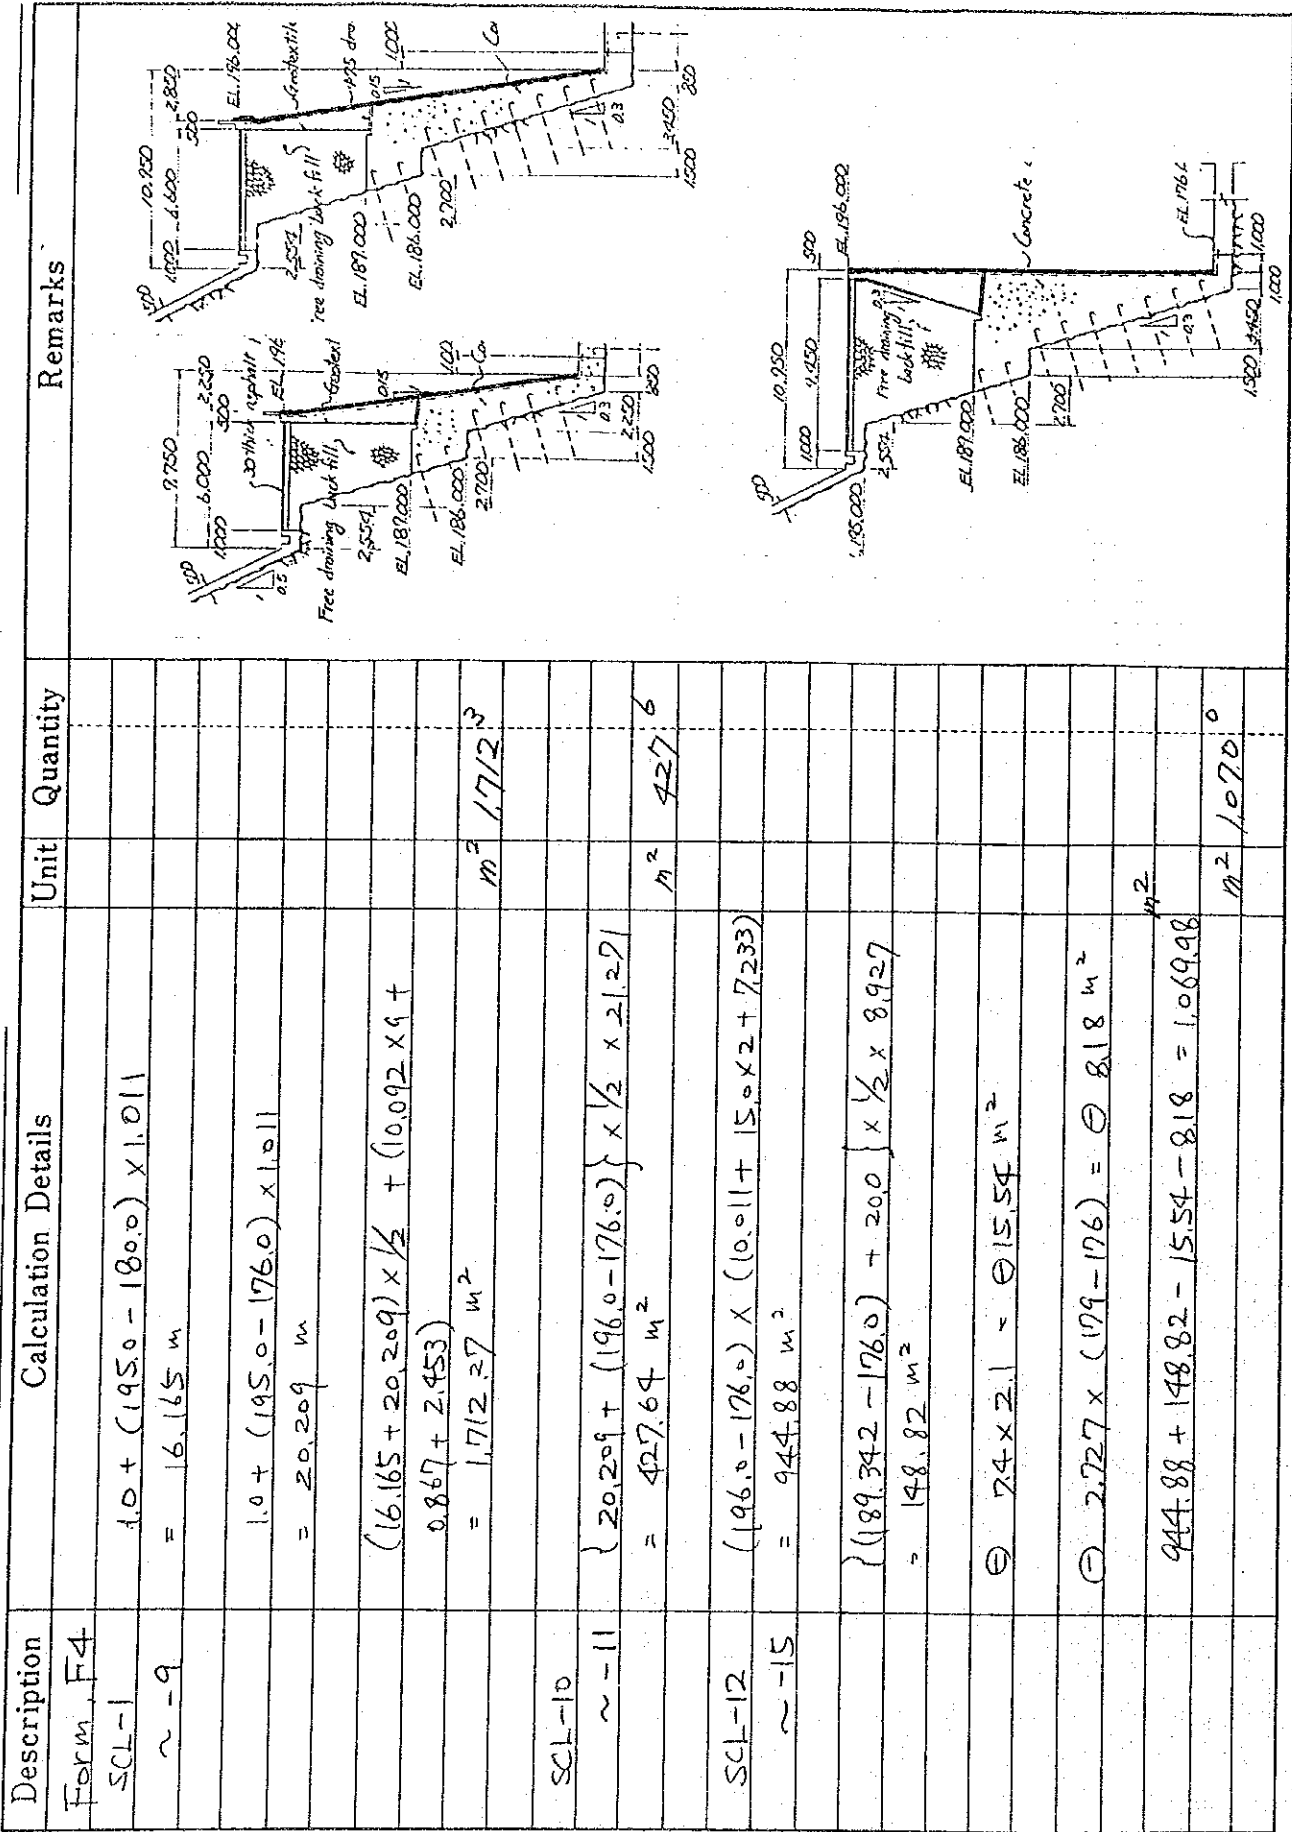 Description Calculation Details Unit Quantity Remarks
Form, F4
SCL-1 1.0 + (195.0 - 180.0) × 1.011
~ -9 = 16.165 m
1.0 + (195.0 - 176.0) × 1.011
= 20.209 m
(16.165 + 20.209) × 1/2 + (10.092 × 9 +
0.867 + 2.453)
= 1,712.27 m² m² 1,712 3
SCL-10 {20.209 + (196.0 - 176.0)} × 1/2 × 21.271
~ -11 = 427.64 m² m² 427 6
SCL-12 (196.0 - 176.0) × (10.011 + 15.0 × 2 + 7.233)
~ -15 = 944.88 m²
{(189.342 - 176.0) + 20.0} × 1/2 × 8.927
= 148.82 m²
⊖ 7.4 × 2.1 = ⊖ 15.54 m²
⊖ 2.727 × (179 - 176) = ⊖ 8.18 m²
m²
944.88 + 148.82 - 15.54 - 8.18 = 1,069.98
m² 1,070 0
9.750
1,000 6.000 500 2.250
500
30 thick asphalt
EL.196
1
0.5
Free draining back fill
Geotext
2,554
EL.189.000
0.15
1
EL.186.000
2,700
1.00
Co
1
0.3
1,500 2.250 850
10.950
1,000 6.600 500 2,850
500
EL.196.000
Geotextile
φ75 dra
2,554
ree draining back fill
0.15
1
EL.189.000
EL.186.000
2,700
1.000
Co
1
0.3
1,500 3,450 850
10.950
1,000 9.450 500
500
EL.196.000
195.000
2,554
Free draining
back fill
0.3
1
EL.189.000
EL.186.000
2,700
Concrete
1
0.3
EL.176.0
1,500 4,450 1,000
1,000